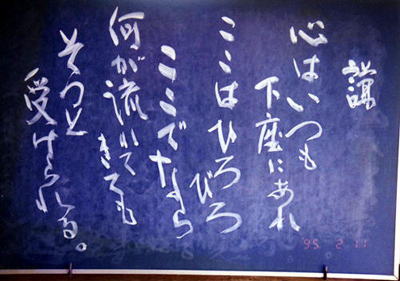 心はいつも
下座にあれ
ここはひろびろ
ここでなら
何が流れてきても
そっと
受けられる。
95 2 11